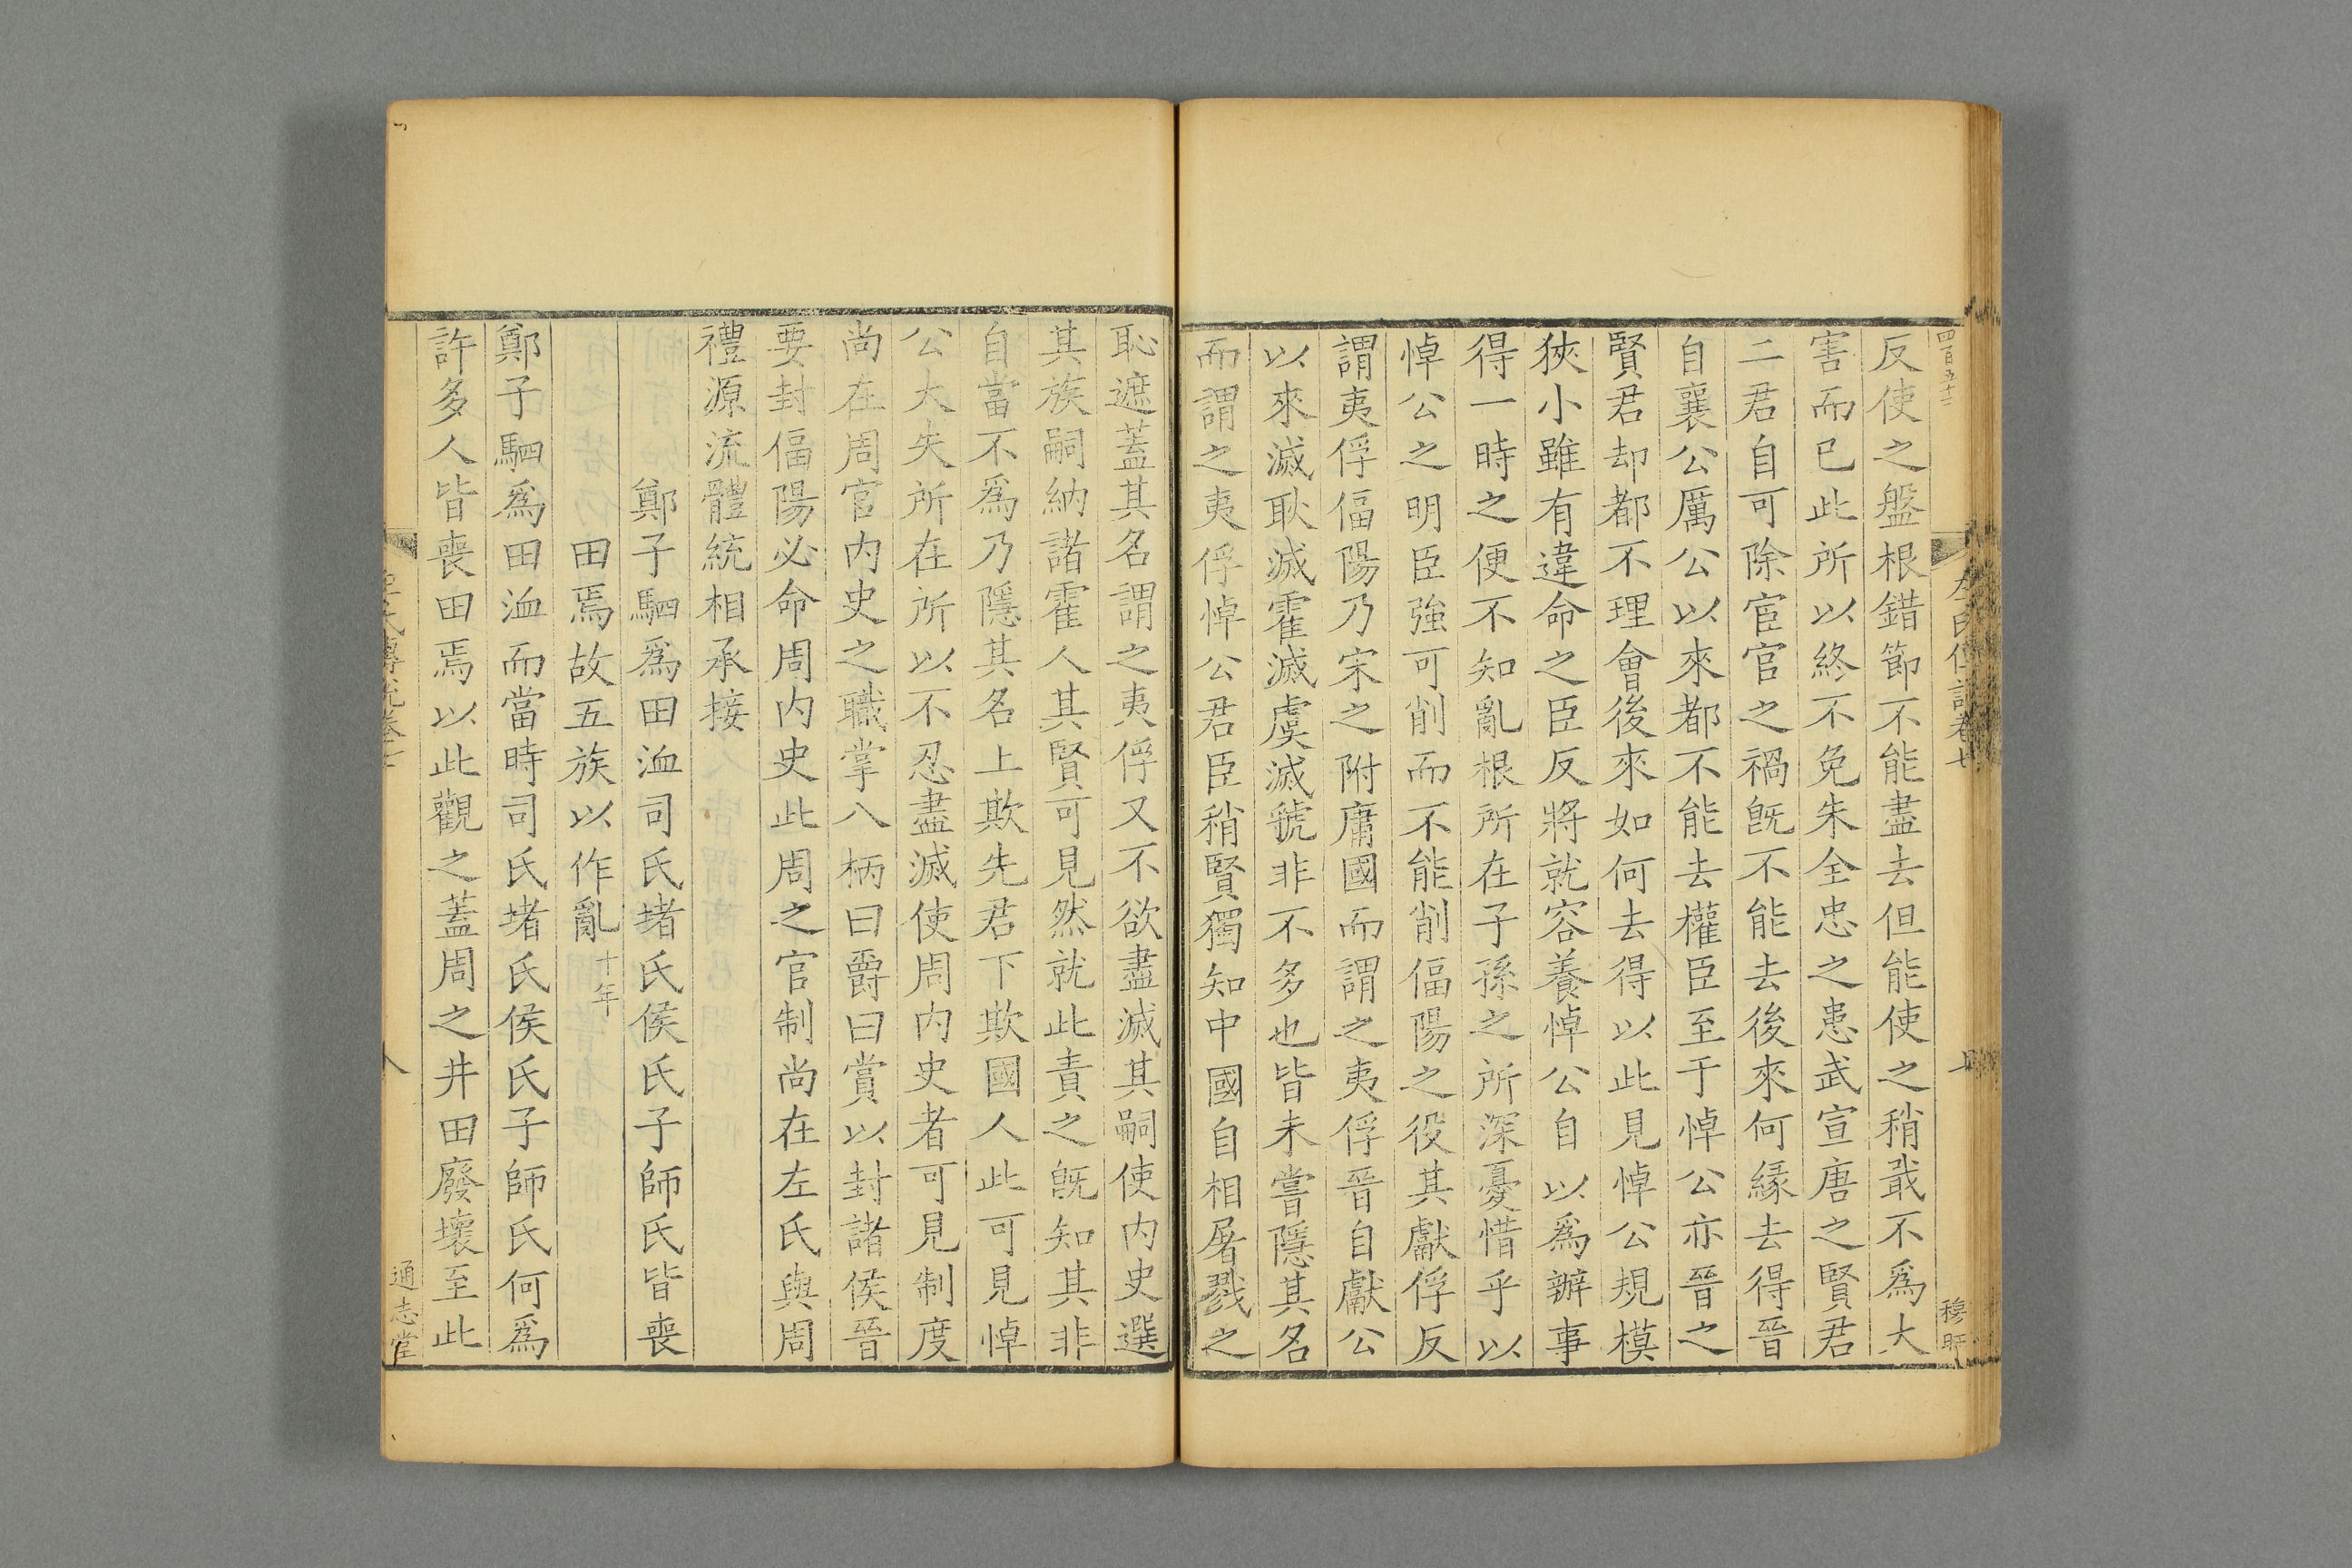 四百五十二
左氏傳說卷七
穆旺
反使之盤根錯節不能盡去但能使之稍戢不爲大
害而已此所以終不免朱全忠之患武宣唐之賢君
二君自可除宦官之禍旣不能去後來何緣去得晉
自襄公厲公以來都不能去權臣至于悼公亦晉之
賢君却都不理會後來如何去得以此見悼公規模
狹小雖有違命之臣反將就容養悼公自以爲辦事
得一時之便不知亂根所在子孫之所深憂惜乎以
悼公之明臣強可削而不能削偪陽之役其獻俘反
謂夷俘偪陽乃宋之附庸國而謂之夷俘晉自獻公
以來滅耿滅霍滅虞滅虢非不多也皆未嘗隱其名
而謂之夷俘悼公君臣稍賢獨知中國自相屠戮之
恥遮蓋其名謂之夷俘又不欲盡滅其嗣使內史選
其族嗣納諸霍人其賢可見然就此責之旣知其非
自當不爲乃隱其名上欺先君下欺國人此可見悼
公大失所在所以不忍盡滅使周內史者可見制度
尚在周官內史之職掌八柄曰爵曰賞以封諸侯晉
要封偪陽必命周內史此周之官制尚在左氏與周
禮源流體統相承接
鄭子駟爲田洫司氏堵氏侯氏子師氏皆喪
田焉故五族以作亂十年
鄭子駟爲田洫而當時司氏堵氏侯氏子師氏何爲
許多人皆喪田焉以此觀之蓋周之井田廢壞至此
八
通志堂